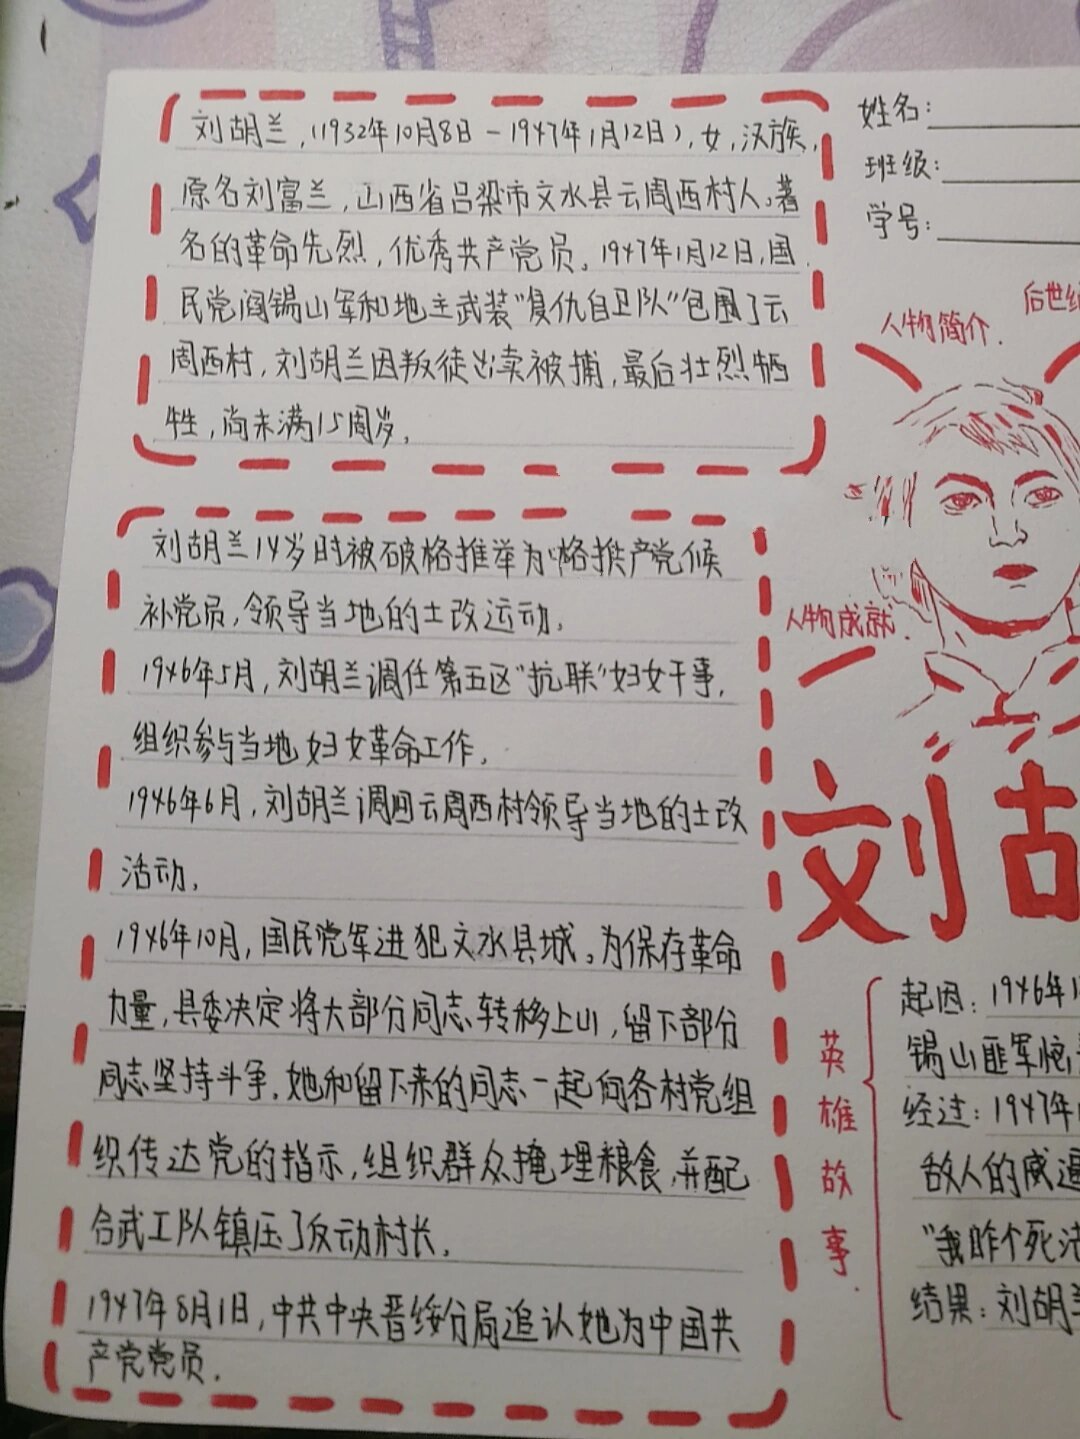 刘胡兰，(1932年10月8日－1947年1月12日)，女，汉族，
原名刘富兰，山西省吕梁市文水县云周西村人。著
名的革命先烈，优秀共产党员。1947年1月12日，国
民党阎锡山军和地主武装"复仇自卫队"包围了云
周西村，刘胡兰因叛徒出卖被捕，最后壮烈牺
牲，尚未满15周岁。
刘胡兰14岁时被破格推举为
补党员，领导当地的土改运动。
1946年5月，刘胡兰调任第五区"抗联"妇女干事，
组织参与当地妇女革命工作。
1946年6月，刘胡兰调回云周西村领导当地的土改
活动。
1946年10月，国民党军进犯文水县城。为保存革命
力量，县委决定将大部分同志转移上山，留下部分
同志坚持斗争。她和留下来的同志一起向各村党组
织传达党的指示，组织群众掩埋粮食，并配
合武工队镇压了反动村长。
1947年8月1日，中共中央晋绥分局追认她为中国共
产党党员．
姓名：
班级：
学号：
后世纪
人物简介．
人物成就．
刘胡
英雄故事．
起因：1946年1
锡山匪军
经过：1947年
敌人的威逼
"我咋个死法
结果：刘胡兰